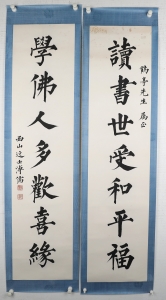 鶴亭先生 屬正
讀書世受和平福
學佛人多歡喜緣
西山逸士溥儒